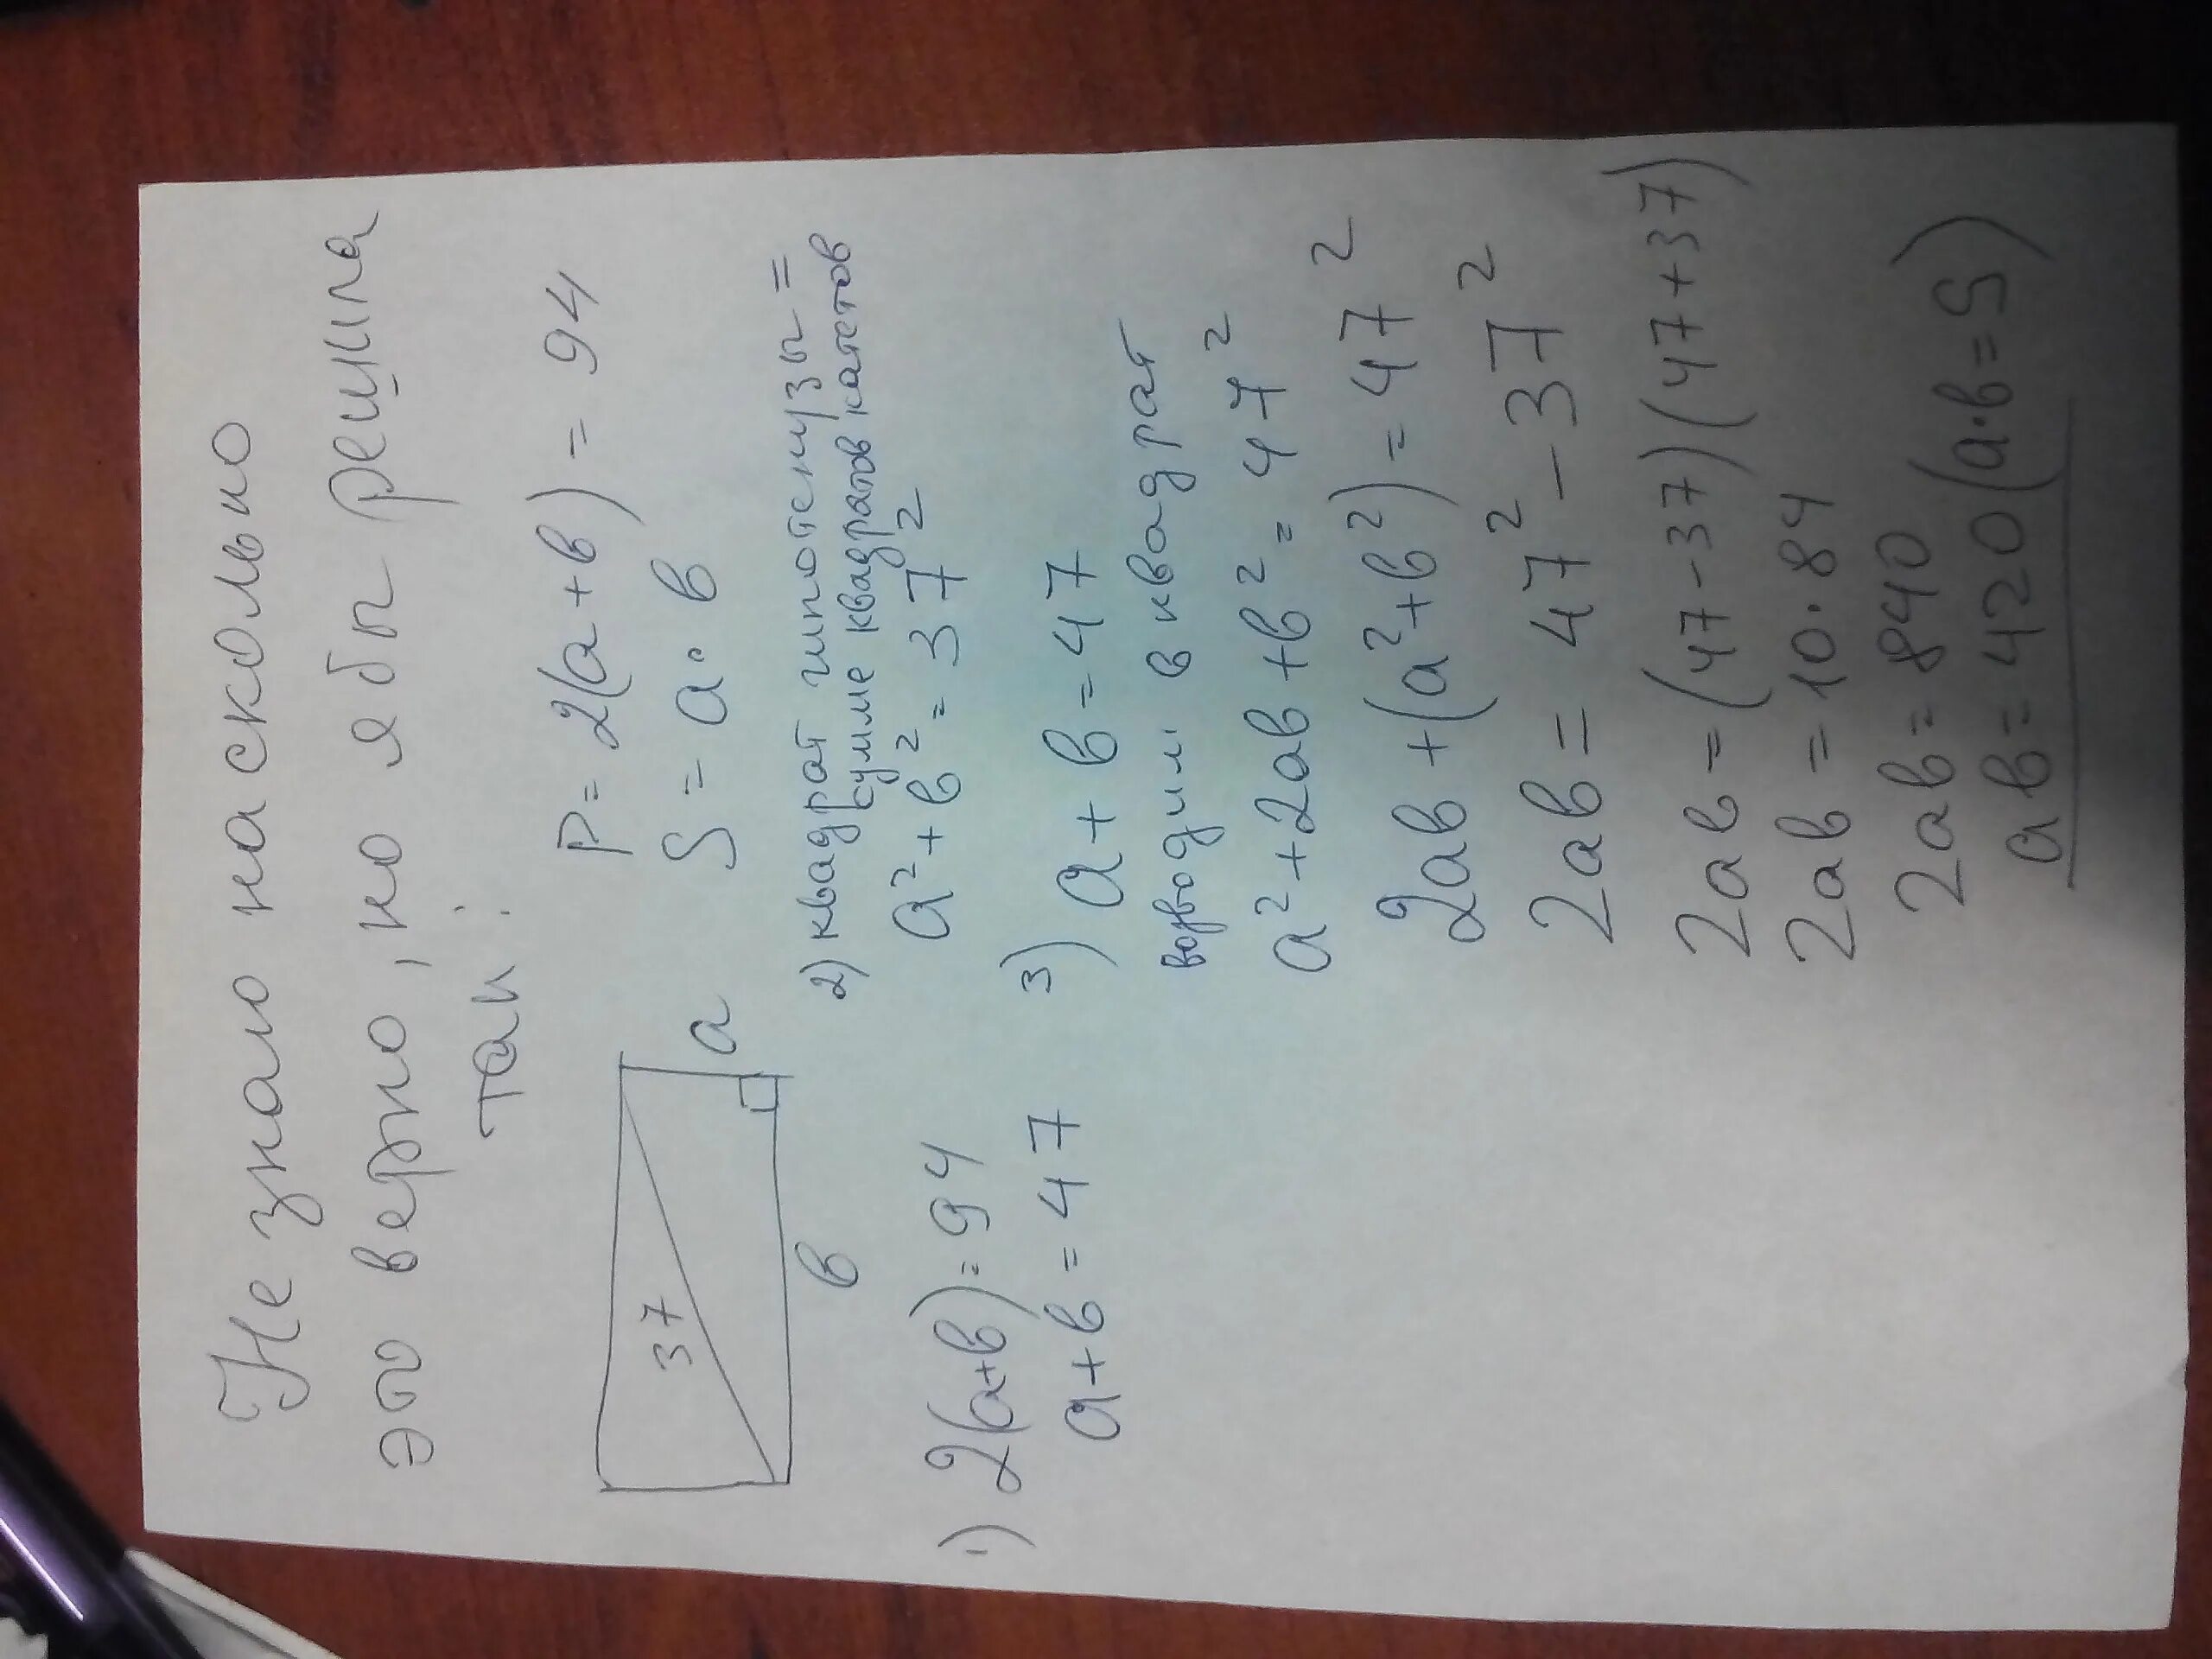 Не знаю насколько
это верно, но я бы решила
так:
P = 2(a+в) = 94
S = a · в
37
a
в
1) 2(a+в)=94
a+в=47
2) квадрат гипотенузы =
сумме квадратов катетов
a²+в²=37²
3) a+в=47
возводим в квадрат
a²+2aв+в²=47²
2aв+(a²+в²)=47²
2aв=47²-37²
2aв=(47-37)(47+37)
2aв=10·84
2aв=840
aв=420(a·в=S)